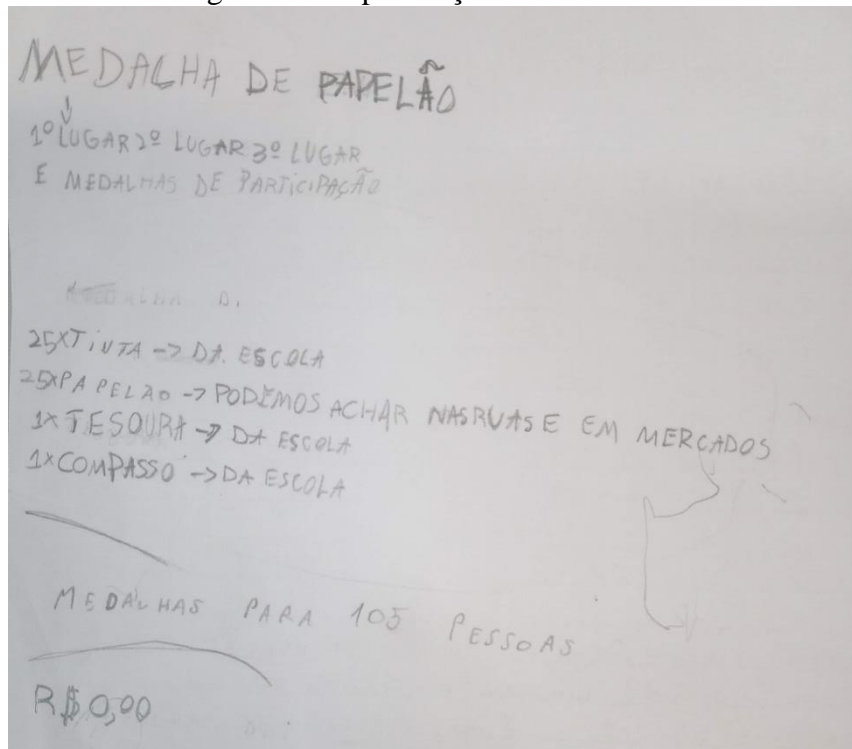 MEDALHA DE PAPELÃO
1º LUGAR 2º LUGAR 3º LUGAR
E MEDALHAS DE PARTICIPAÇÃO
25XTINTA -> DA ESCOLA
25XPAPELÃO -> PODEMOS ACHAR NAS RUAS E EM MERCADOS
1X TESOURA -> DA ESCOLA
1XCOMPASSO -> DA ESCOLA
MEDALHAS PARA 105 PESSOAS
R$0,00